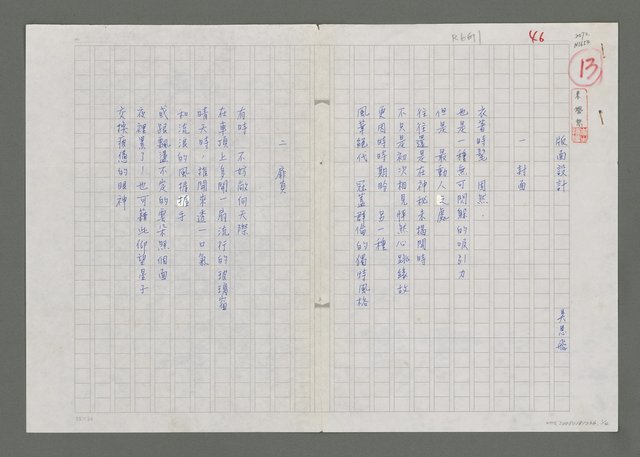 版面設計
吳思飛
一 封面
衣著時髦 固然.
也是一種無可閃解的吸引力
但是 最動人之處
往往還是在神秘未揭開時
不只是初次相見怦然心跳緣故
更因時時期盼 另一種
風華絕代 冠蓋群倫的獨特風格
二 扉頁
有時 不妨敞向天際
在車頂上多開一扇流行的玻璃窗
晴天時,推開來透一口氣
和流浪的風握握手
或跟飄盪不定的雲朵照個面
夜裡累了!也可藉此仰望星子
交換疲憊的眼神
R661
46
13